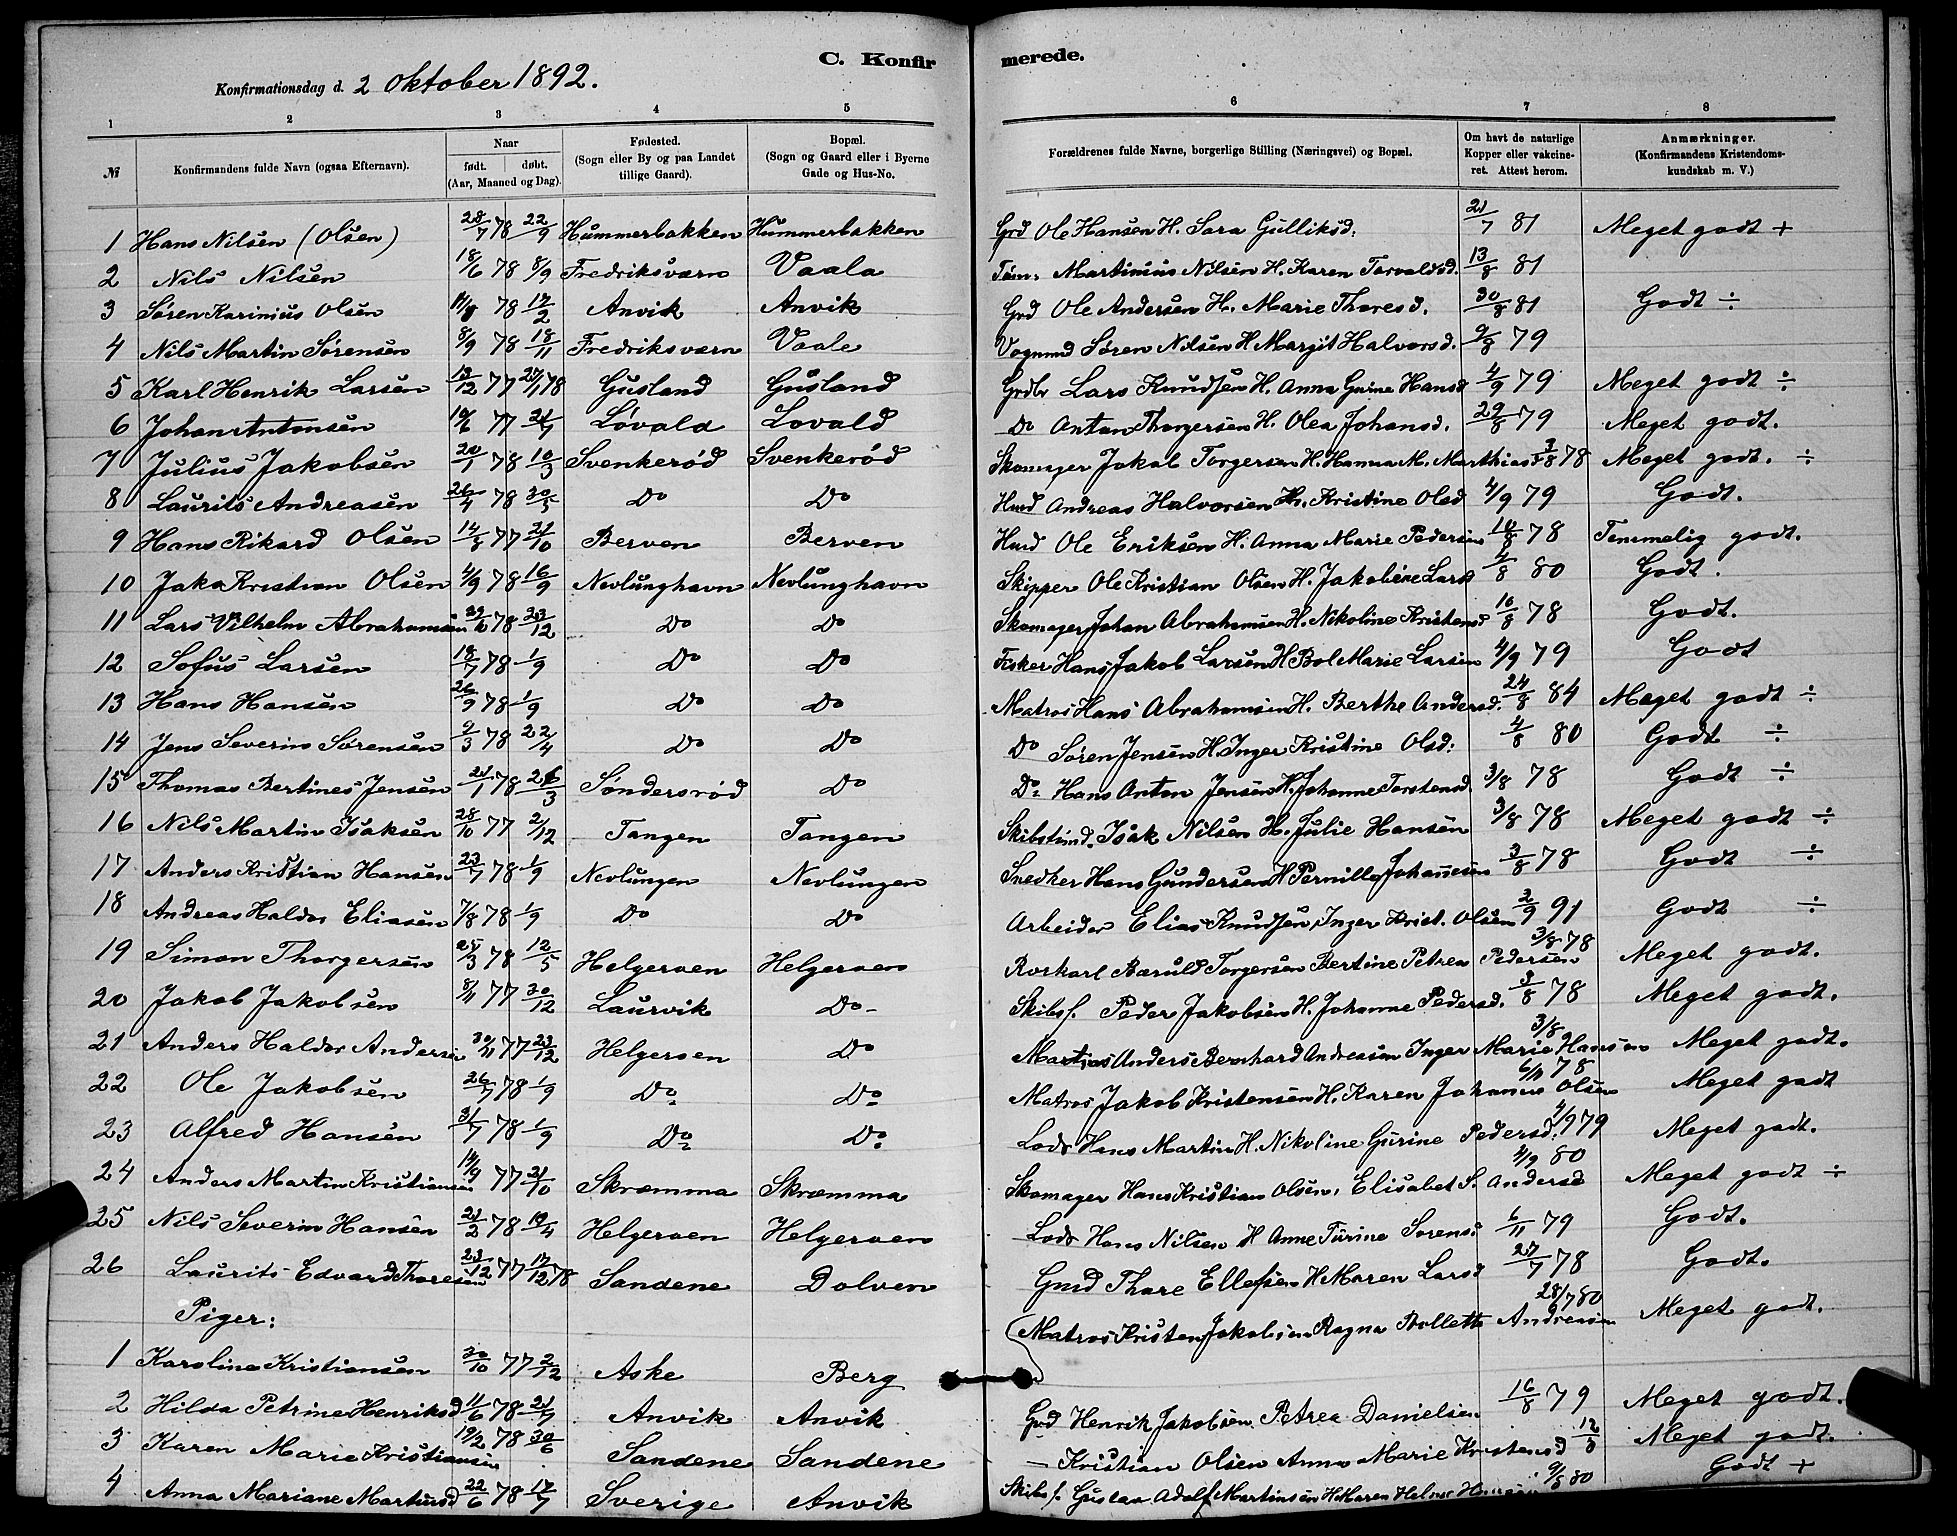 C. Konfirmerede.
Konfirmationsdag d. 2 Oktober 1892.
1 2 3 4 5 6 7 8
№ Konfirmandens fulde Navn (ogsaa Efternavn). Naar født. døbt. (Aar, Maaned og Dag). Fødested. (Sogn eller By og paa Landet tillige Gaard). Bopæl. (Sogn og Gaard eller i Byerne Gade og Hus-No. Forældrenes fulde Navne, borgerlige Stilling (Næringsvei) og Bopæl. Om havt de naturlige Kopper eller vakcineret. Attest herom. Anmærkninger. (Konfirmandens Kristendomskundskab m. V.)
1 Hans Nilsen (Olsen) 28/7 78 22/9 Hummerbakken Hummerbakken Grd Ole Hansen H. Sara Gulliksd: 21/7 81 Meget godt +
2 Nils Nilsen 18/6 78 8/9 Fredriksværn Vaala Tøm: Martinius Nilsen H. Karen Torvaldsd. 13/8 81
3 Søren Karinius Olsen 78 17/2 Anvik Anvik Grd Ole Andersen H. Marie Thoresd. 30/8 81 Godt ÷
4 Nils Martin Sørensen 8/9 78 18/11 Fredriksværn Vaale Vognmd Søren Nilsen H Margit Halvorsd. 9/8 79
5 Karl Henrik Larsen 13/12 77 27/1 78 Gusland Gusland Grdbr Lars Knudsen H. Anna Gurine Hansd 4/9 79 Meget godt ÷
6 Johan Antonsen 77 Løvald Lovald Do Anton Thorgersen H. Olea Johansd. 29/8 79 Meget godt.
7 Julius Jakobsen 20/1 78 10/3 Svenkerød Svenkerød Skomager Jakob Torgersen H. Hanna M. Marthiasd 3/8 78 Meget godt. ÷
8 Laurits Andreasen 26/4 78 30/5 Do Do Husd Andreas Halvorsen H. Kristine Olsd 4/9 79 Godt.
9 Hans Rikard Olsen 14/8 77 21/10 Berven Berven Husd Ole Eriksen H. Anna Marie Pedersen 10/8 78 Temmelig godt.
10 Jaka Kristian Olsen 4/9 78 16/9 Nevlunghavn Nevlunghavn Skipper Ole Kristian Olsen H. Jakobine Larsd 4/8 80 Godt.
11 Lars Vilhelm Abrahamsen 78 23/12 Do Do Skomager Johan Abrahamsen H. Nikoline Kristensd 10/8 78 Godt.
12 Sofus Larsen 18/7 78 1/9 Do Do Fisker Hans Jakob Larsen H Bol Marie Larsen 4/9 79 Godt
13 Hans Hansen 26/9 78 1/9 Do Do Matros Hans Abrahamsen H. Berthe Andersd. 24/8 84 Meget godt ÷
14 Jens Severin Sørensen 9/3 78 22/4 Do Do Do Søren Jensen H. Inger Kristine Olsd: 4/8 80 Godt ÷
15 Thomas Bertines Jensen 21/1 78 26/3 Søndersrød Do Do Hans Anton Jensen H. Johanne Torstensd. 3/8 78 Godt ÷
16 Nils Martin Isaksen 28/10 77 2/12 Tangen Tangen Skibstimd. Isak Nilsen H. Julie Hansen 3/8 78 Meget godt ÷
17 Anders Kristian Hansen 23/7 78 1/9 Nevlungen Nevlungen Snedker Hans Gundersen H Pernille Johannesen 3/8 78 Godt ÷
18 Andreas Haldor Eliasen 7/8 78 1/9 Do Do Arbeider Elias Knudsen, Inger Krist. Olsen 2/9 91 Godt ÷
19 Simon Thorgersen 25/3 78 12/5 Helgeroen Helgeroen Rorkarl Baruld Torgersen Bertine Petrea Pedersen 3/8 78 Meget godt.
20 Jakob Jakobsen 8/11 77 30/12 Laurvik Do Skibsf. Peder Jakobsen H. Johanne Pedersd. 3/8 78 Meget godt.
21 Anders Haldor Andersen 30/11 77 23/12 Helgeroen Do Anders Bernhard Andreasen Inger Marie Hansen 3/8 Meget godt.
22 Ole Jakobsen 26/7 78 1/9 Do Do Matros Jakob Kristensen H. Karen Johanne Olsen 6/11 78 Meget godt
23 Alfred Hansen 31/7 78 1/9 Do Do Lods Hans Martin H. Nikoline Gurine Pedersd. 4/9 79 Meget godt.
24 Anders Martin Kristiansen 14/9 77 21/10 Skræmma Skræmma Skomager Hans Kristian Olsen, Elisabet S. Andersd 4/9 80 Meget godt ÷
25 Nils Severin Hansen 21/2 78 19/4 Helgeroen Helgeroen Lods Hans Nilsen H Anne Turine Sorensd 6/11 79 Godt.
26 Laurits Edvard Thoresen 23/12 77 17/12 78 Sandene Dolven Gmd Thore Ellefsen H Maren Larsd 27/7 78 Godt.
Piger:
1 Karoline Kristiansen 30/10 77 2/12 Aske Berg Matros Kristen Jakobsen Ragna Bollette Andreasen 28/7 80 Meget godt.
2 Hilda Petrine Henriksd 11/6 78 21/7 Anvik Anvik Grd Henrik Jakobsen Petrea Danielsen 16/8 79 Meget godt.
3 Karen Marie Kristiansen 19/2 78 30/6 Sandene Sandene — Kristian Olsen Anna Marie Kristensd 12/8 Meget godt.
4 Anna Mariane Martinsd 22/6 78 17/7 Sverige Anvik Skibsf. Gustav Adolf Martinsen H Maren Helene 9/8 80 Godt +